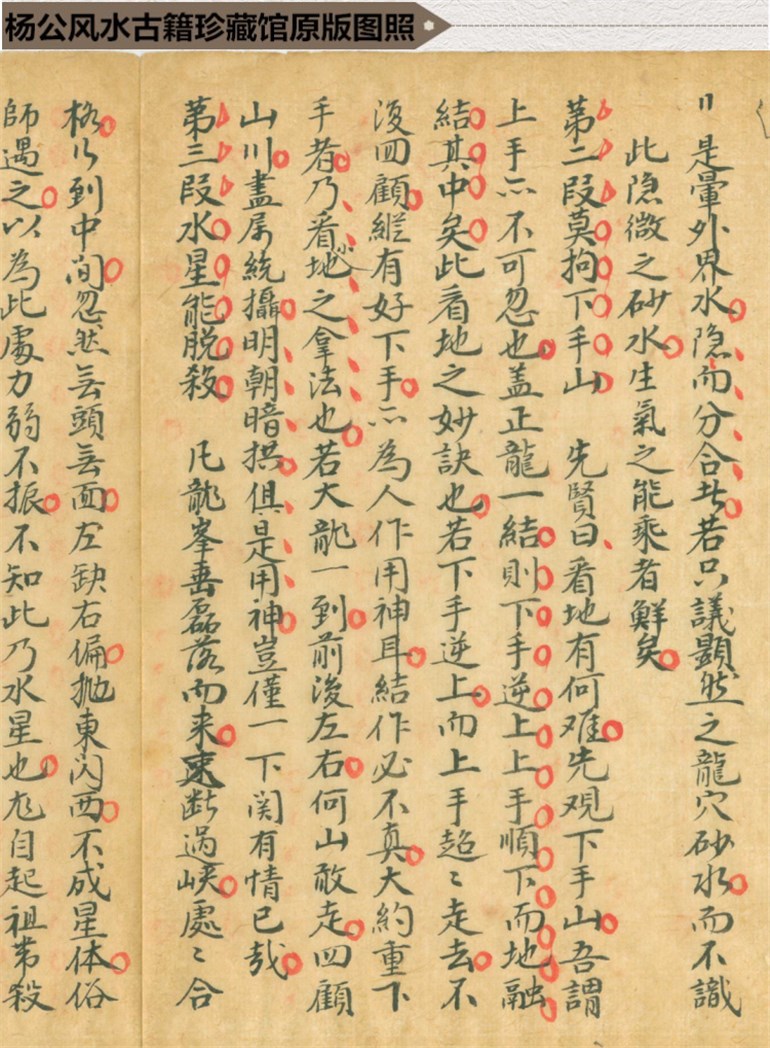 杨公风水古籍珍藏馆原版图照
〢是暈外界水隐而分合此若只議顯然之龍穴砂水而不識
此隐微之砂水生氣之能乘者鮮矣
第二段莫拘下手山 先賢曰看地有何难先观下手山吾謂
上手亦不可忽也盖正龍一結則下手逆上上手順下而地融
結其中矣此看地之妙訣也若下手逆上而上手趋〻走去不
後回顧縱有好下手亦為人作用神耳結作必不真大約重下
手者乃看地之拿法也若大龍一到前後左右何山敢走四顧
山川盡屬統攝明朝暗拱俱是用神豈僅一下関有情已哉
第三段水星能脱殺 凡龍峯巒磊落而来束断過峽處〻合
格以到中间忽然無頭無面左缺右偏拋東闪西不成星体俗
師遇之以為此處力弱不振不知此乃水星也尨自起祖帶殺